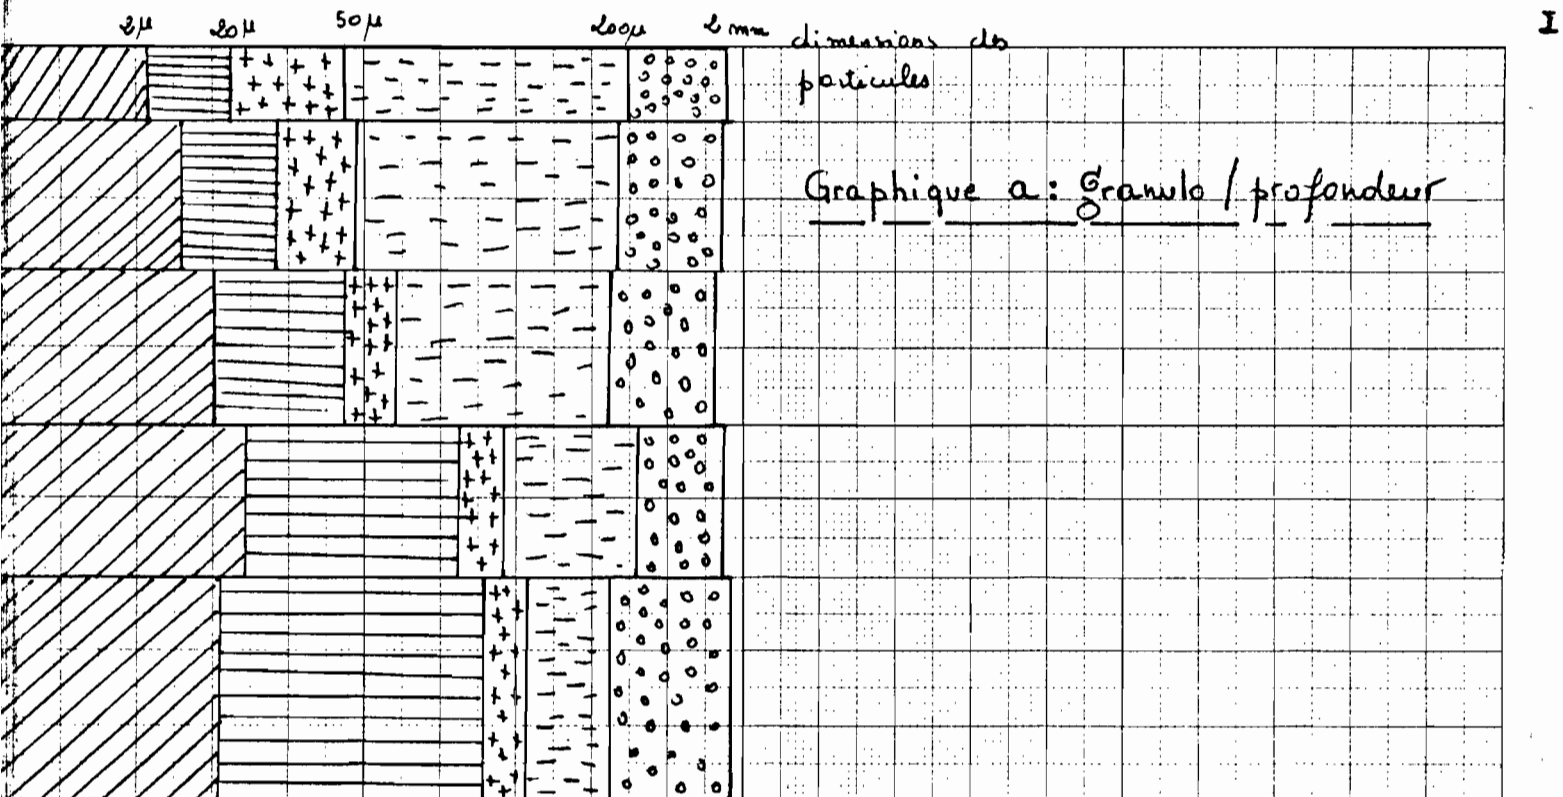 2µ 20µ 50µ 200µ 2 mm dimensions des
particules
I
Graphique a : Granulo / profondeur